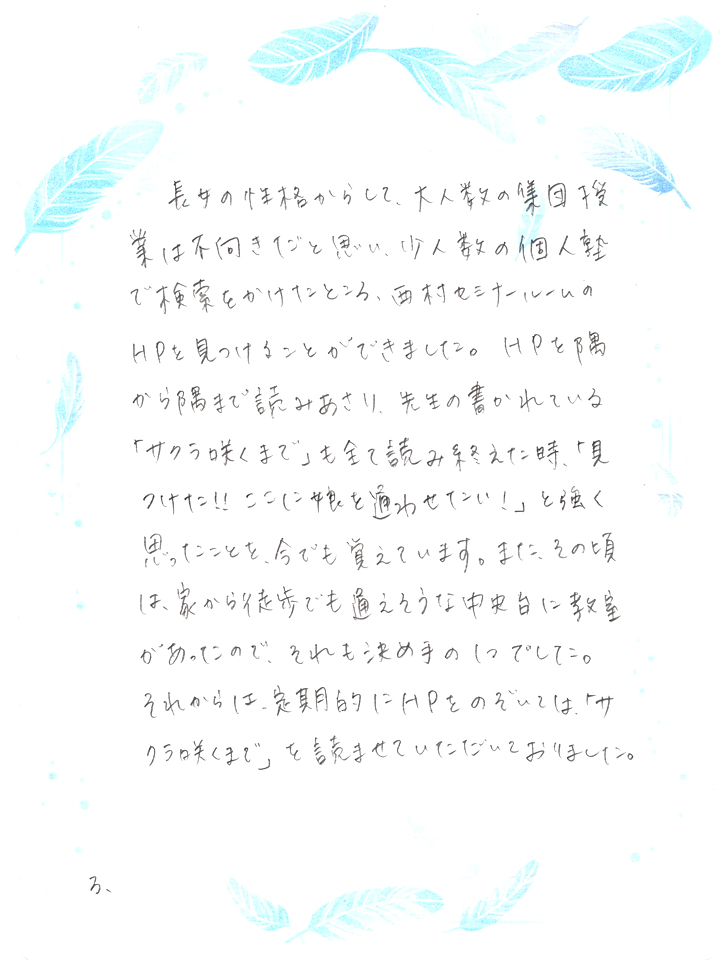 長女の性格からして、大人数の集団授
業は不向きだと思い、少人数の個人塾
で検索をかけたところ、西村セミナールームの
HPを見つけることができました。HPを隅
から隅まで読みあさり、先生の書かれている
「サクラ咲くまで」も全て読み終えた時、「見
つけた!!ここに娘を通わせたい!」と強く
思ったことを、今でも覚えています。また、その頃
は、家から徒歩でも通えそうな中央台に教室
があったので、それも決め手の1つでした。
それからは、定期的にHPをのぞいては、「サ
クラ咲くまで」を読ませていただいておりました。
3、